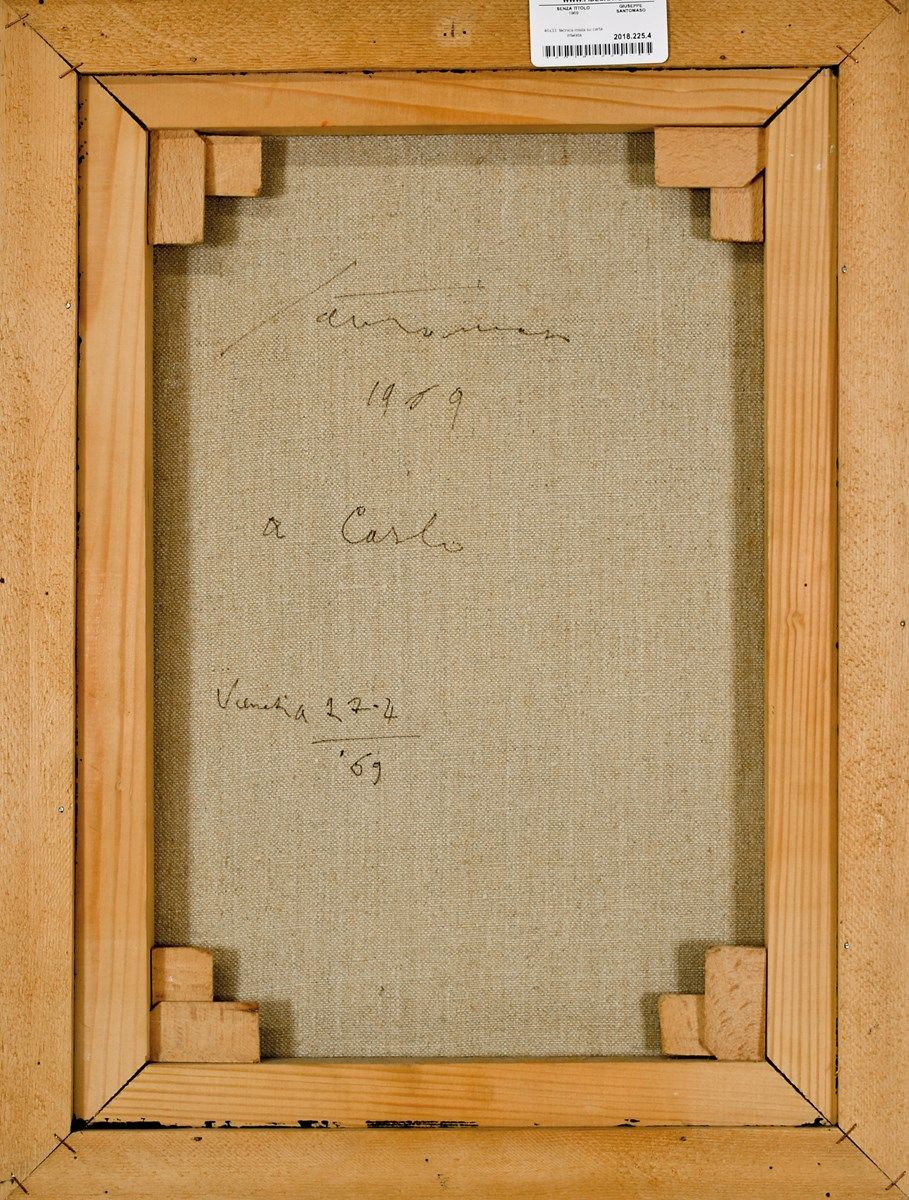 SENZA TITOLO
1969
GIUSEPPE
SANTOMASO
tecnica mista su carta
intelata
2018.225.4
Santomaso
1969
a Carlo
Venezia 27.4
'69